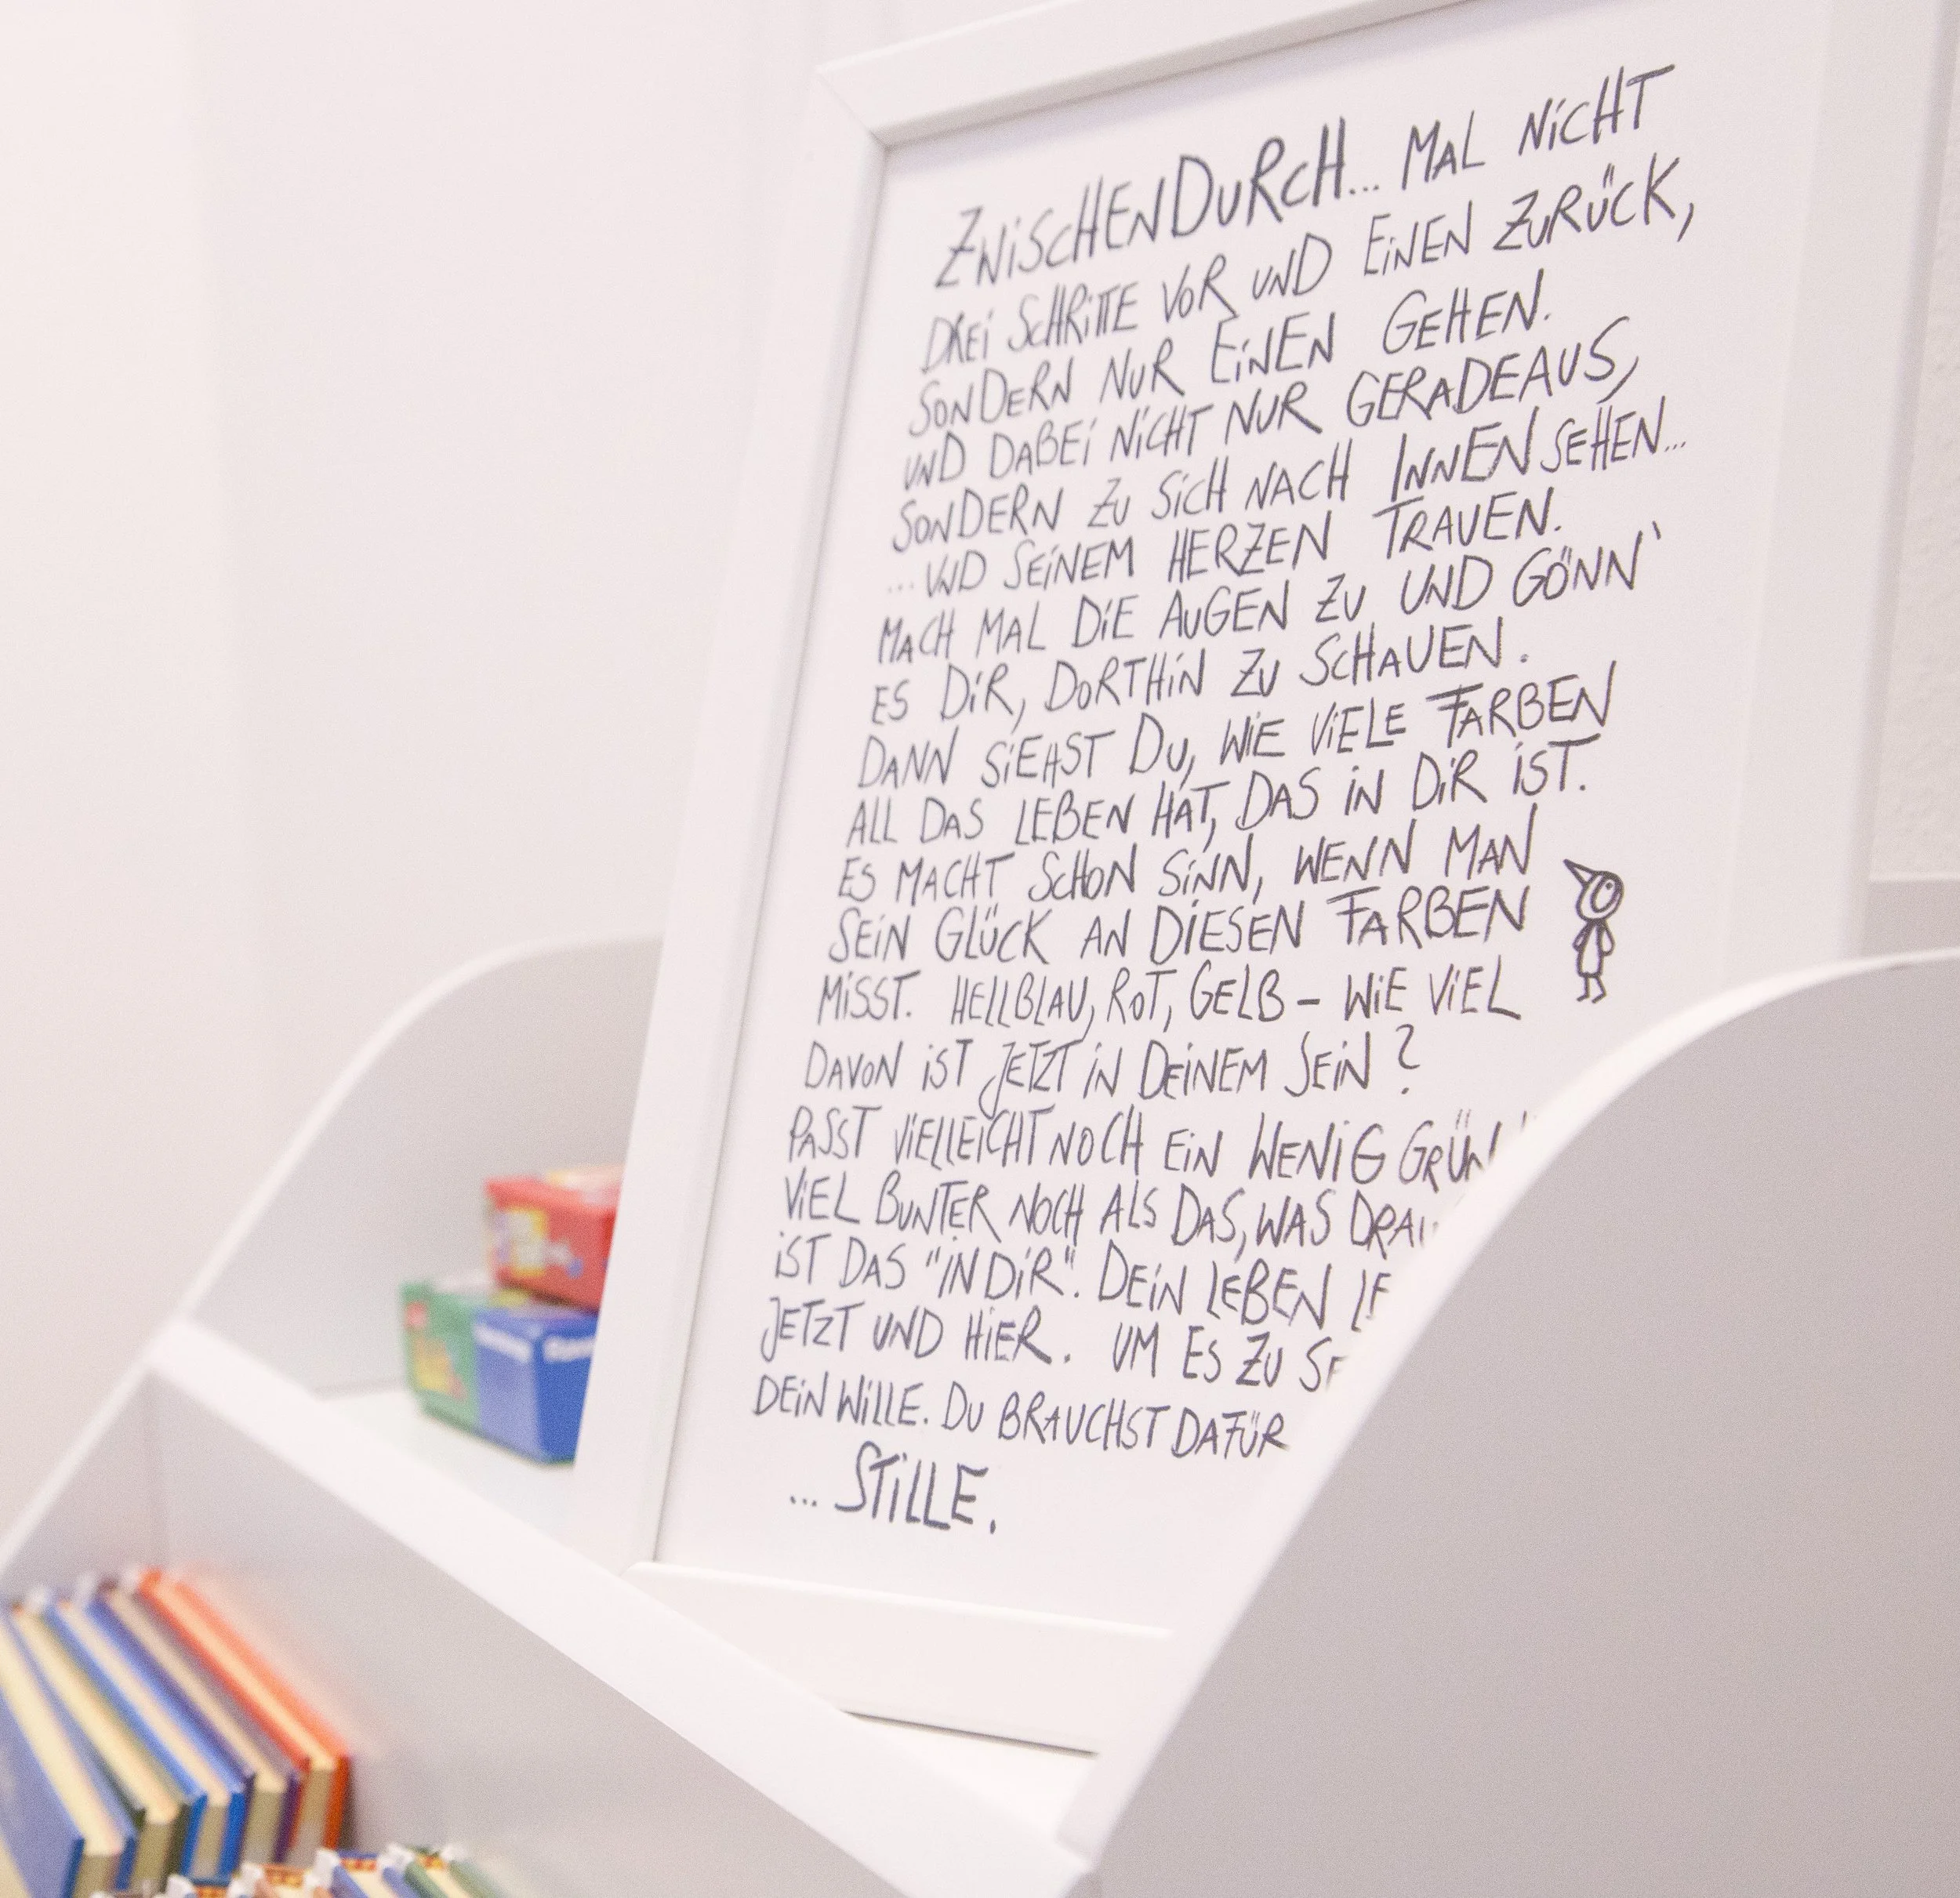 ZWISCHENDURCH... MAL NICHT
DREI SCHRITTE VOR UND EINEN ZURÜCK,
SONDERN NUR EINEN GEHEN.
UND DABEI NICHT NUR GERADEAUS,
SONDERN ZU SICH NACH INNEN SEHEN...
...UND SEINEM HERZEN TRAUEN.
MACH MAL DIE AUGEN ZU UND GÖNN`
ES DIR, DORTHIN ZU SCHAUEN.
DANN SIEHST DU, WIE VIELE FARBEN
ALL DAS LEBEN HAT, DAS IN DIR IST.
ES MACHT SCHON SINN, WENN MAN
SEIN GLÜCK AN DIESEN FARBEN
MISST. HELLBLAU, ROT, GELB – WIE VIEL
DAVON IST JETZT IN DEINEM SEIN?
PASST VIELLEICHT NOCH EIN WENIG GRÜN
VIEL BUNTER NOCH ALS DAS, WAS
IST DAS "IN DIR". DEIN LEBEN
JETZT UND HIER. UM ES ZU
DEIN WILLE. DU BRAUCHST DAFÜR
... STILLE.